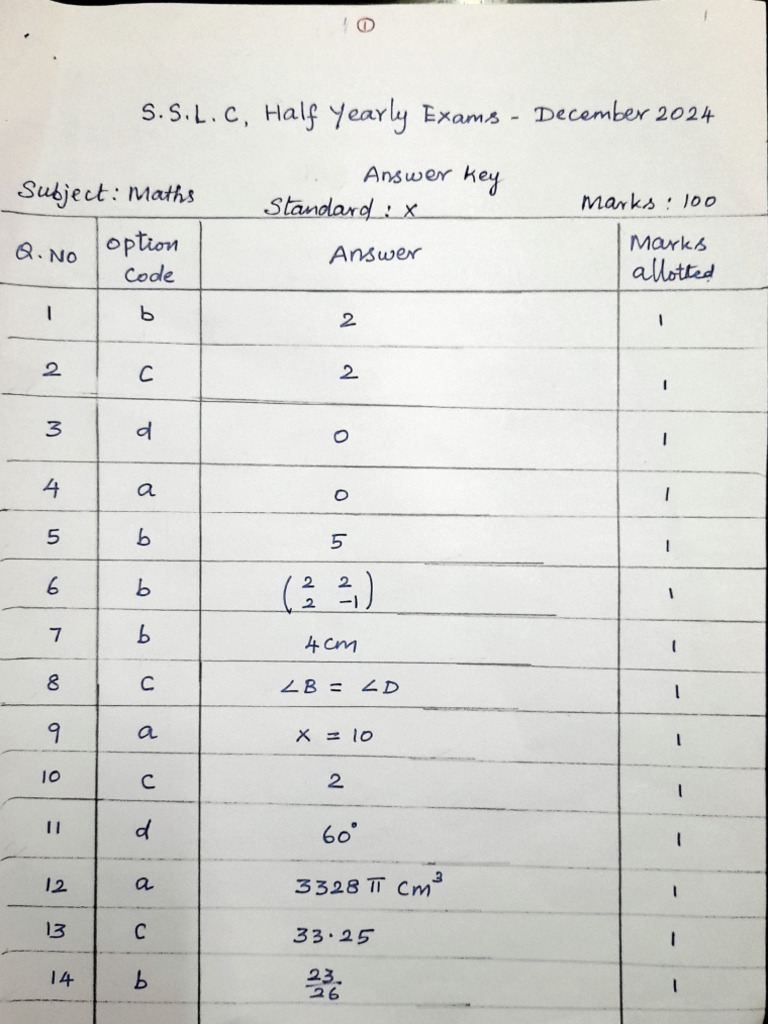 1
S.S.L.C, Half Yearly Exams - December 2024
Answer key
Subject: Maths Standard : X Marks : 100
Q. No Option Code Answer Marks allotted
1 b 2 1
2 C 2 1
3 d 0 1
4 a 0 1
5 b 5 1
6 b (2 2
2 -1) 1
7 b 4cm 1
8 C ∠B = ∠D 1
9 a x = 10 1
10 C 2 1
11 d 60° 1
12 a 3328 π cm³ 1
13 C 33.25 1
14 b 23/26 1